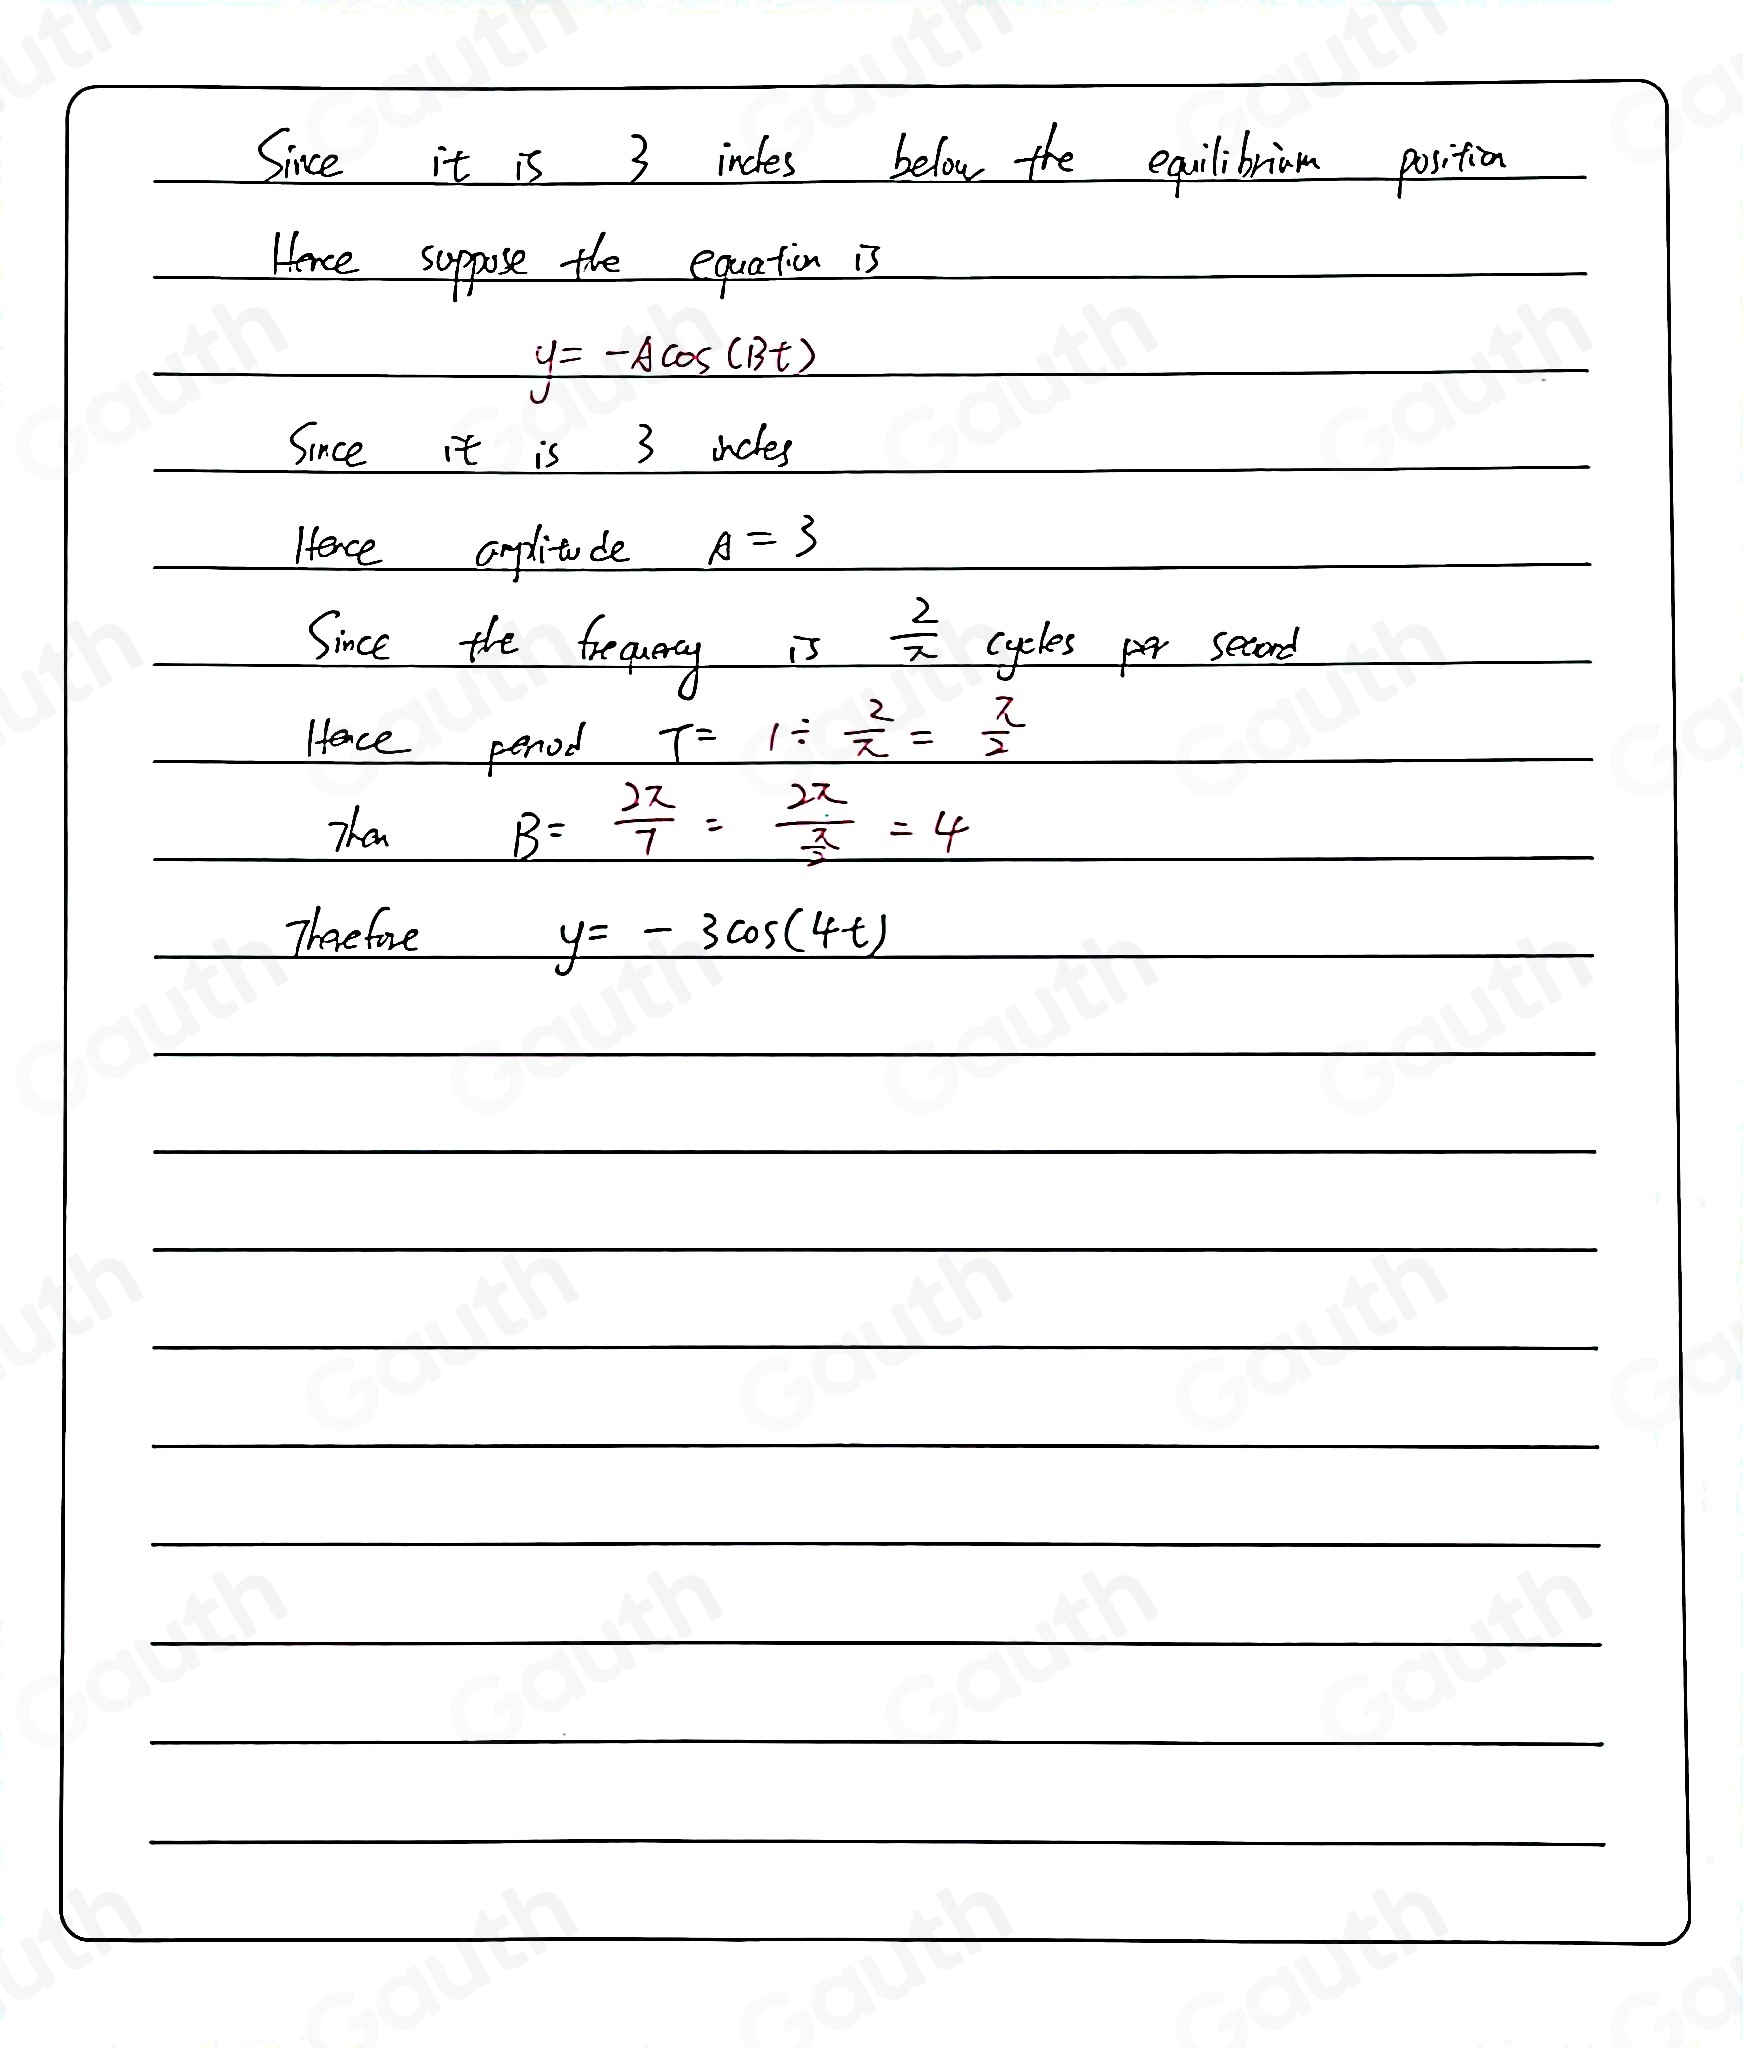 Since it is 3 inches below the equilibrium position
Hence suppose the equation is
y = -A cos (Bt)
Since it is 3 inches
Hence amplitude A = 3
Since the frequency is 2/π cycles per second
Hence period T = 1 ÷ 2/π = π/2
Then B = 2π/T = 2π/(π/2) = 4
Therefore y = - 3 cos(4t)